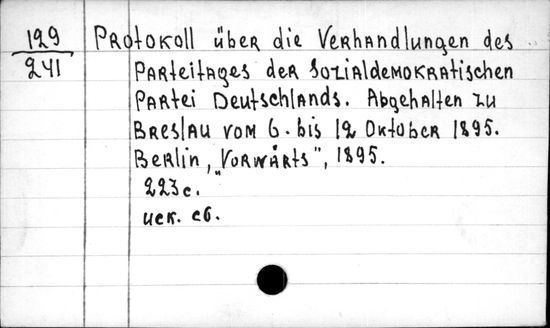 129 Protokoll über die Verhandlungen des
241 Parteitages der Sozialdemokratischen
Partei Deutschlands. Abgehalten zu
Breslau vom 6. bis 12 Oktober 1895.
Berlin, "Vorwärts", 1895.
223 с.
иск. сб.